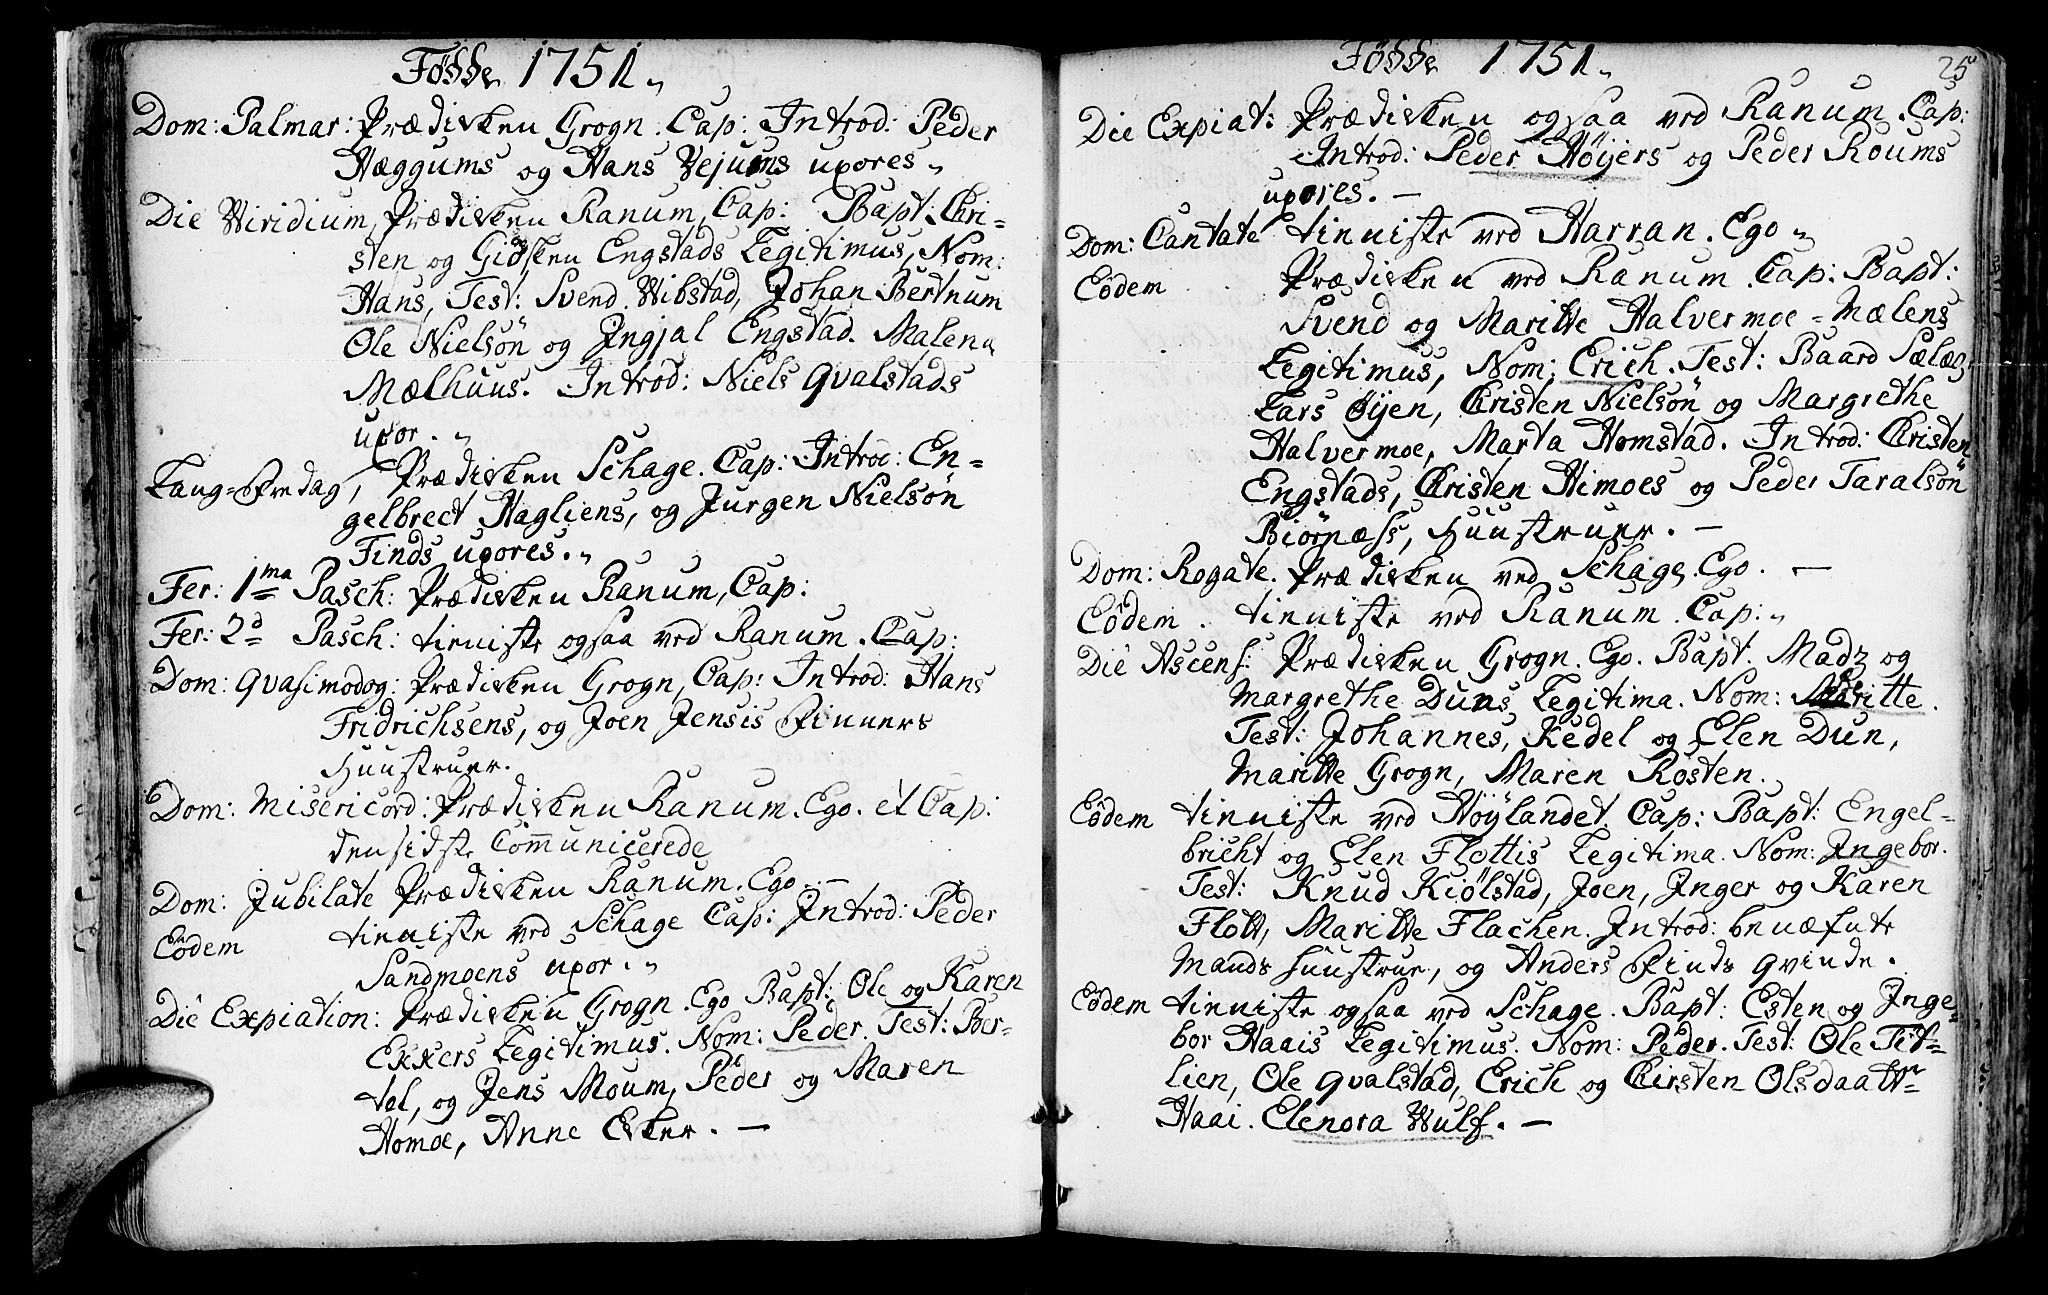 Fødde 1751.
Dom: Palmar: Prædiken Grogn. Cap: Introd: Peder
Hæggums og Hans Vejums uxores.
Die Viridium, Prædiken Ranum, Cap: Bapt: Chri-
sten og Gidsken Engstads Legitimus, Nom:
Hans, Test: Svend Vibstad, Johan Bertnum
Ole Nielsön og Ingjal Engstad. Malena
Mælhuus. Introd: Niels Qvalstads
uxor.
Lang-Fredag, Prædiken Schage. Cap: Introd: En-
gelbrect Hagliens, og Jurgen Nielsön
Finds uxores.
Fer: 1ma Pasch: Prædiken Ranum, Cap:
Fer: 2d Pasch: tieniste ogsaa ved Ranum. Cap:
Dom: Qvasimodog: Prædiken Grogn, Cap: Introd: Hans
Fridrichsens, og Joen Jensis Finners
Huustruer.
Dom: Misericord: Prædiken Ranum. Ego. et Cap:
den sidste Communicerede
Dom: Jubilate Prædiken Ranum. Ego. —
Eodem tieniste ved Schage Cap: Introd: Peder
Sandmoens uxor.
Die Expiation: Prædiken Grogn. Ego Bapt: Ole og Karen
Ekkers Legitimus. Nom: Peder. Test: Ber-
tel, og Jens Moum, Peder og Maren
Homoe, Anne Ekker. —
Fødde 1751.
25
Die Expiat: Prædiken ogsaa ved Ranum. Cap:
Introd: Peder Høyers og Peder Roums
uxores. —
Dom: Cantate tieniste ved Harran. Ego.
Eodem Prædiken ved Ranum. Cap: Bapt:
Svend og Maritte Halvermoe-Mælens
Legitimus, Nom: Erich. Test: Baard Sælæg,
Lars Øyen, Christen Nielsön og Margrethe
Halvermoe, Marta Homstad. Introd: Christen
Engstads, Christen Himoes og Peder Taralsön
Biørnæss, Huustruer. —
Dom: Rogate. Prædiken ved Schage. Ego. —
Eodem. tieniste ved Ranum. Cap:
Die Ascens: Prædiken Grogn. Ego. Bapt. Madz og
Margrethe Duns Legitima. Nom: Maritte.
Test: Johannes, Kedel og Elen Dun,
Maritte Grogn, Maren Rosten.
Eodem tieniste ved Høylandet. Cap: Bapt: Engel-
bricht og Elen Flottis Legitima. Nom: Ingebor.
Test: Knud Kiölstad, Joen, Inger og Karen
Flott, Maritte Flachen. Introd: benæfnte
Mands Huustrue, og Anders Finds Qvinde.
Eodem tieniste ogsaa ved Schage. Bapt: Esten og Inge-
bor Haais Legitimus. Nom: Peder. Test: Ole Tet-
lien, Ole Qvalstad, Erich og Kirsten Olsdaattr
Haai. Elenora Wulf. —